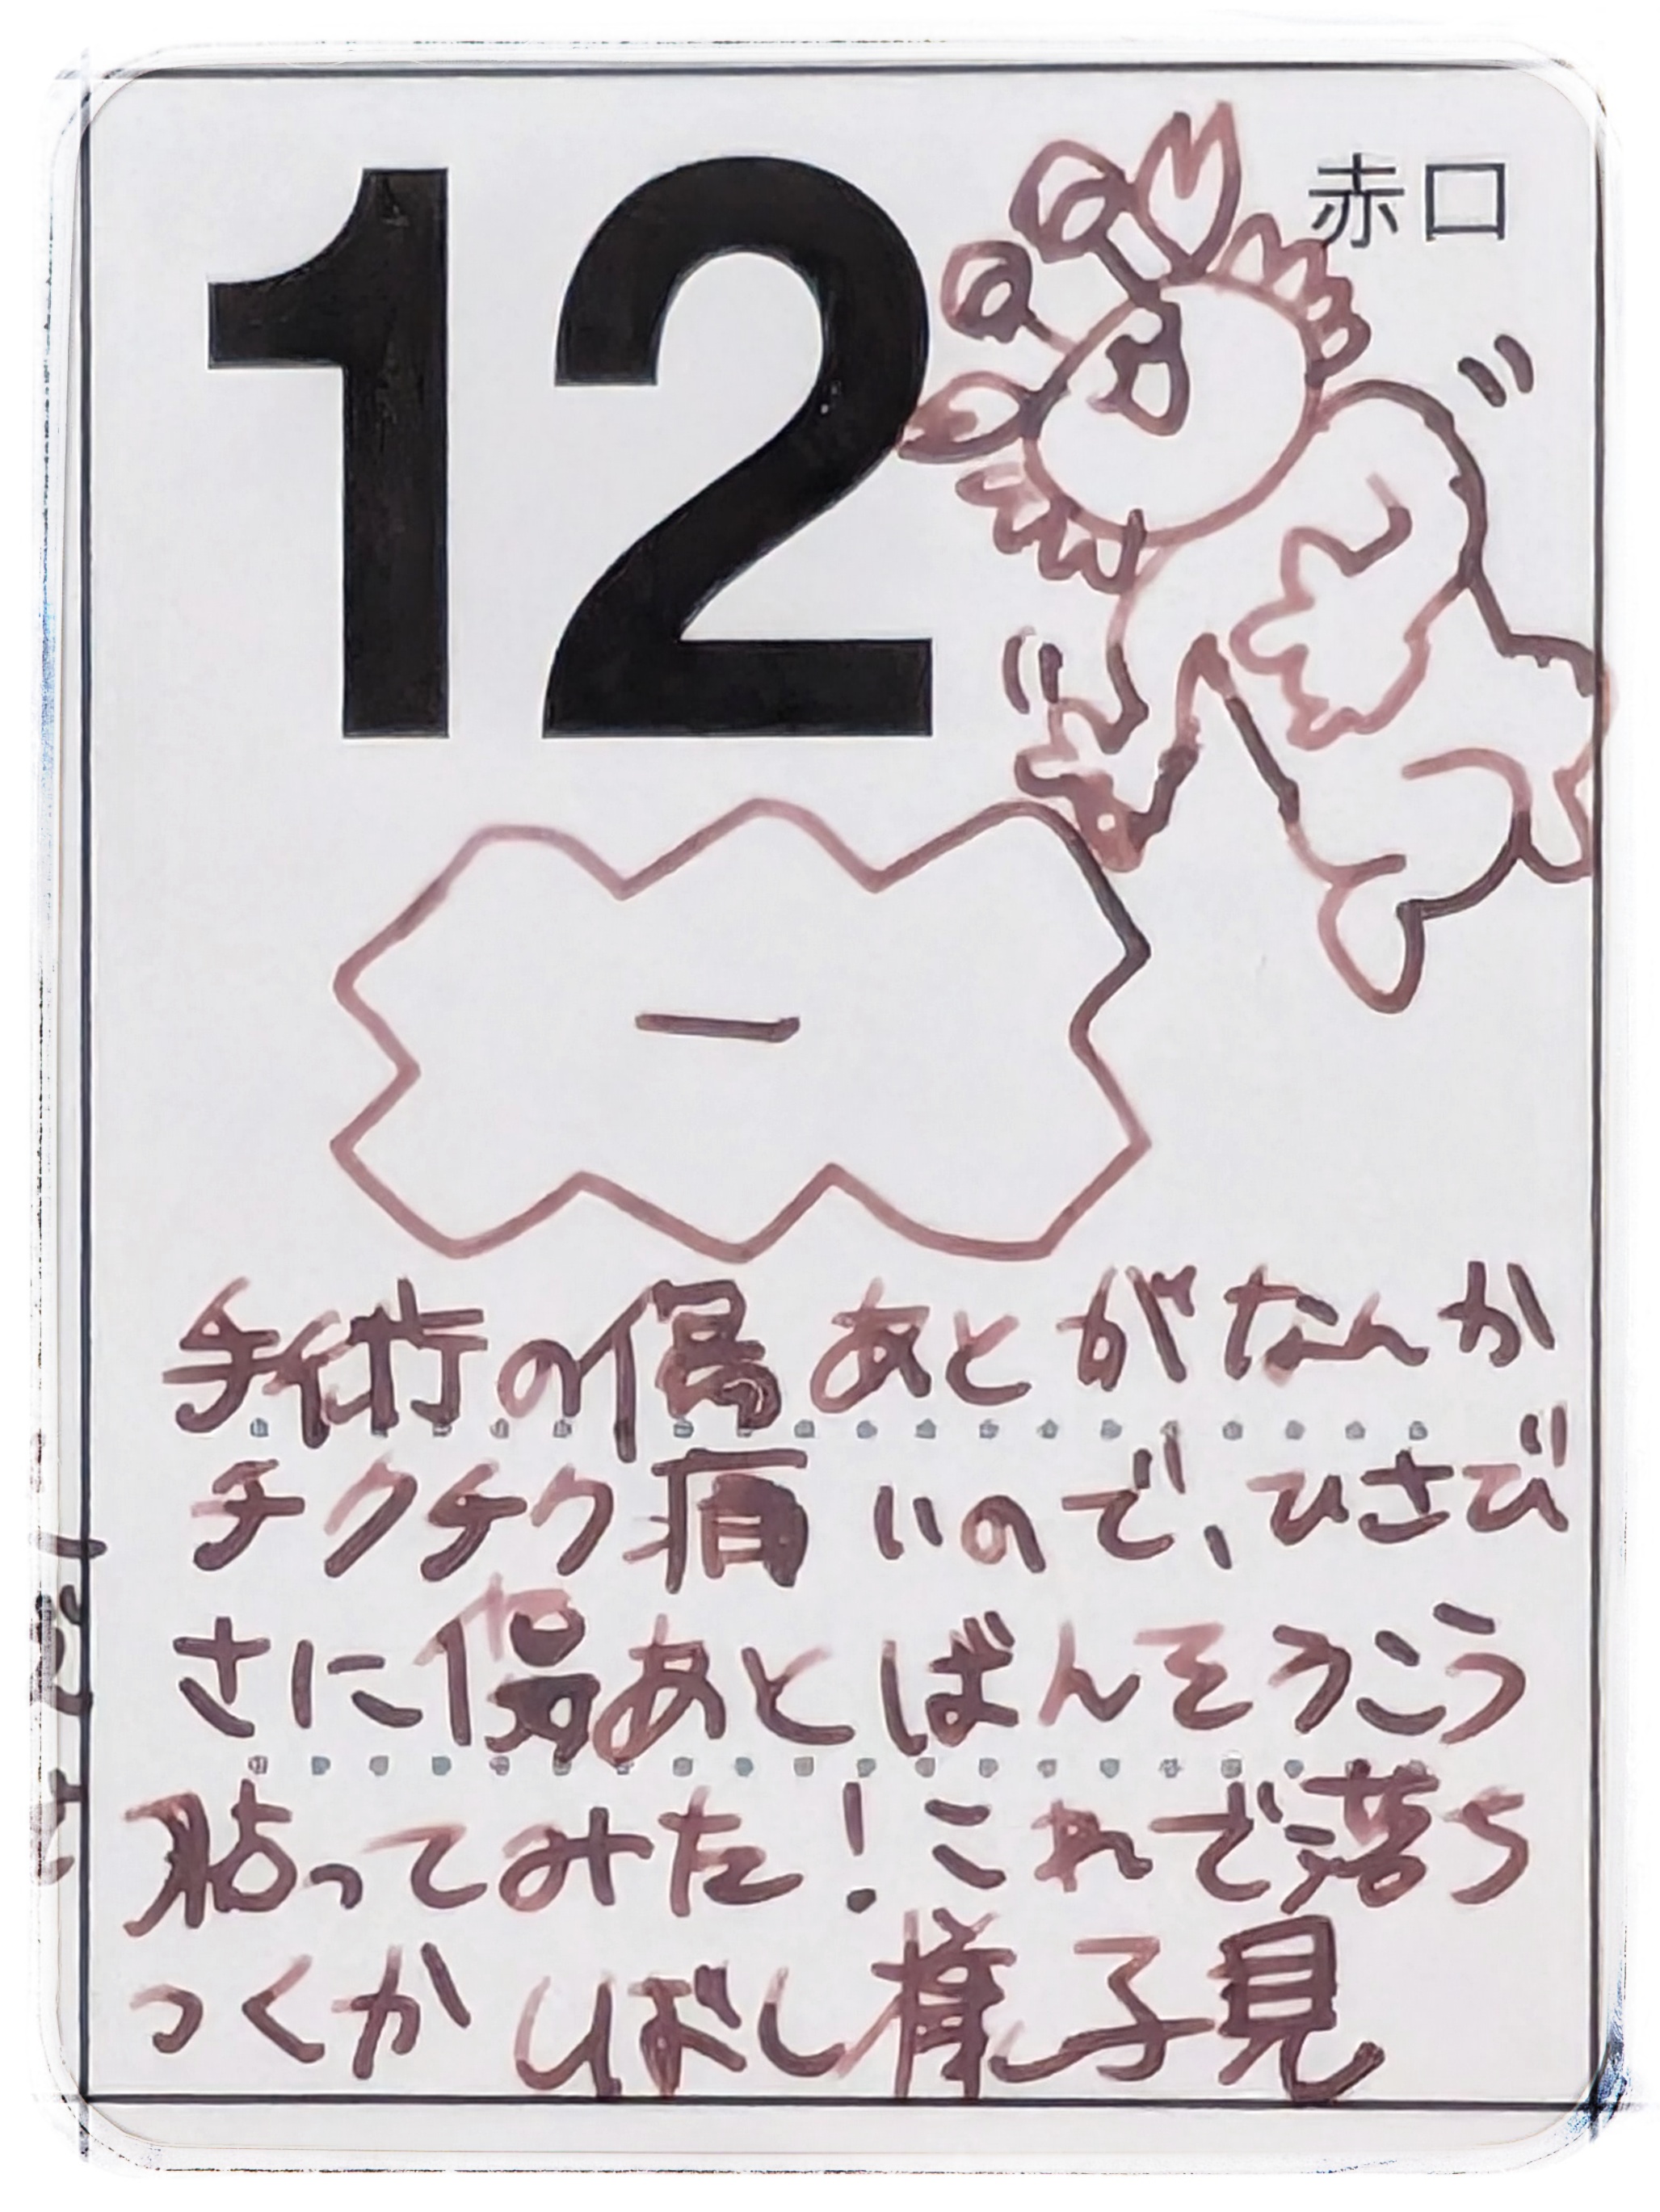 12
赤口
ー
手術の傷あとがなんか
チクチク痛いので、ひさび
さに傷あとばんそうこう
貼ってみた!これで落ち
つくかしばし様子見